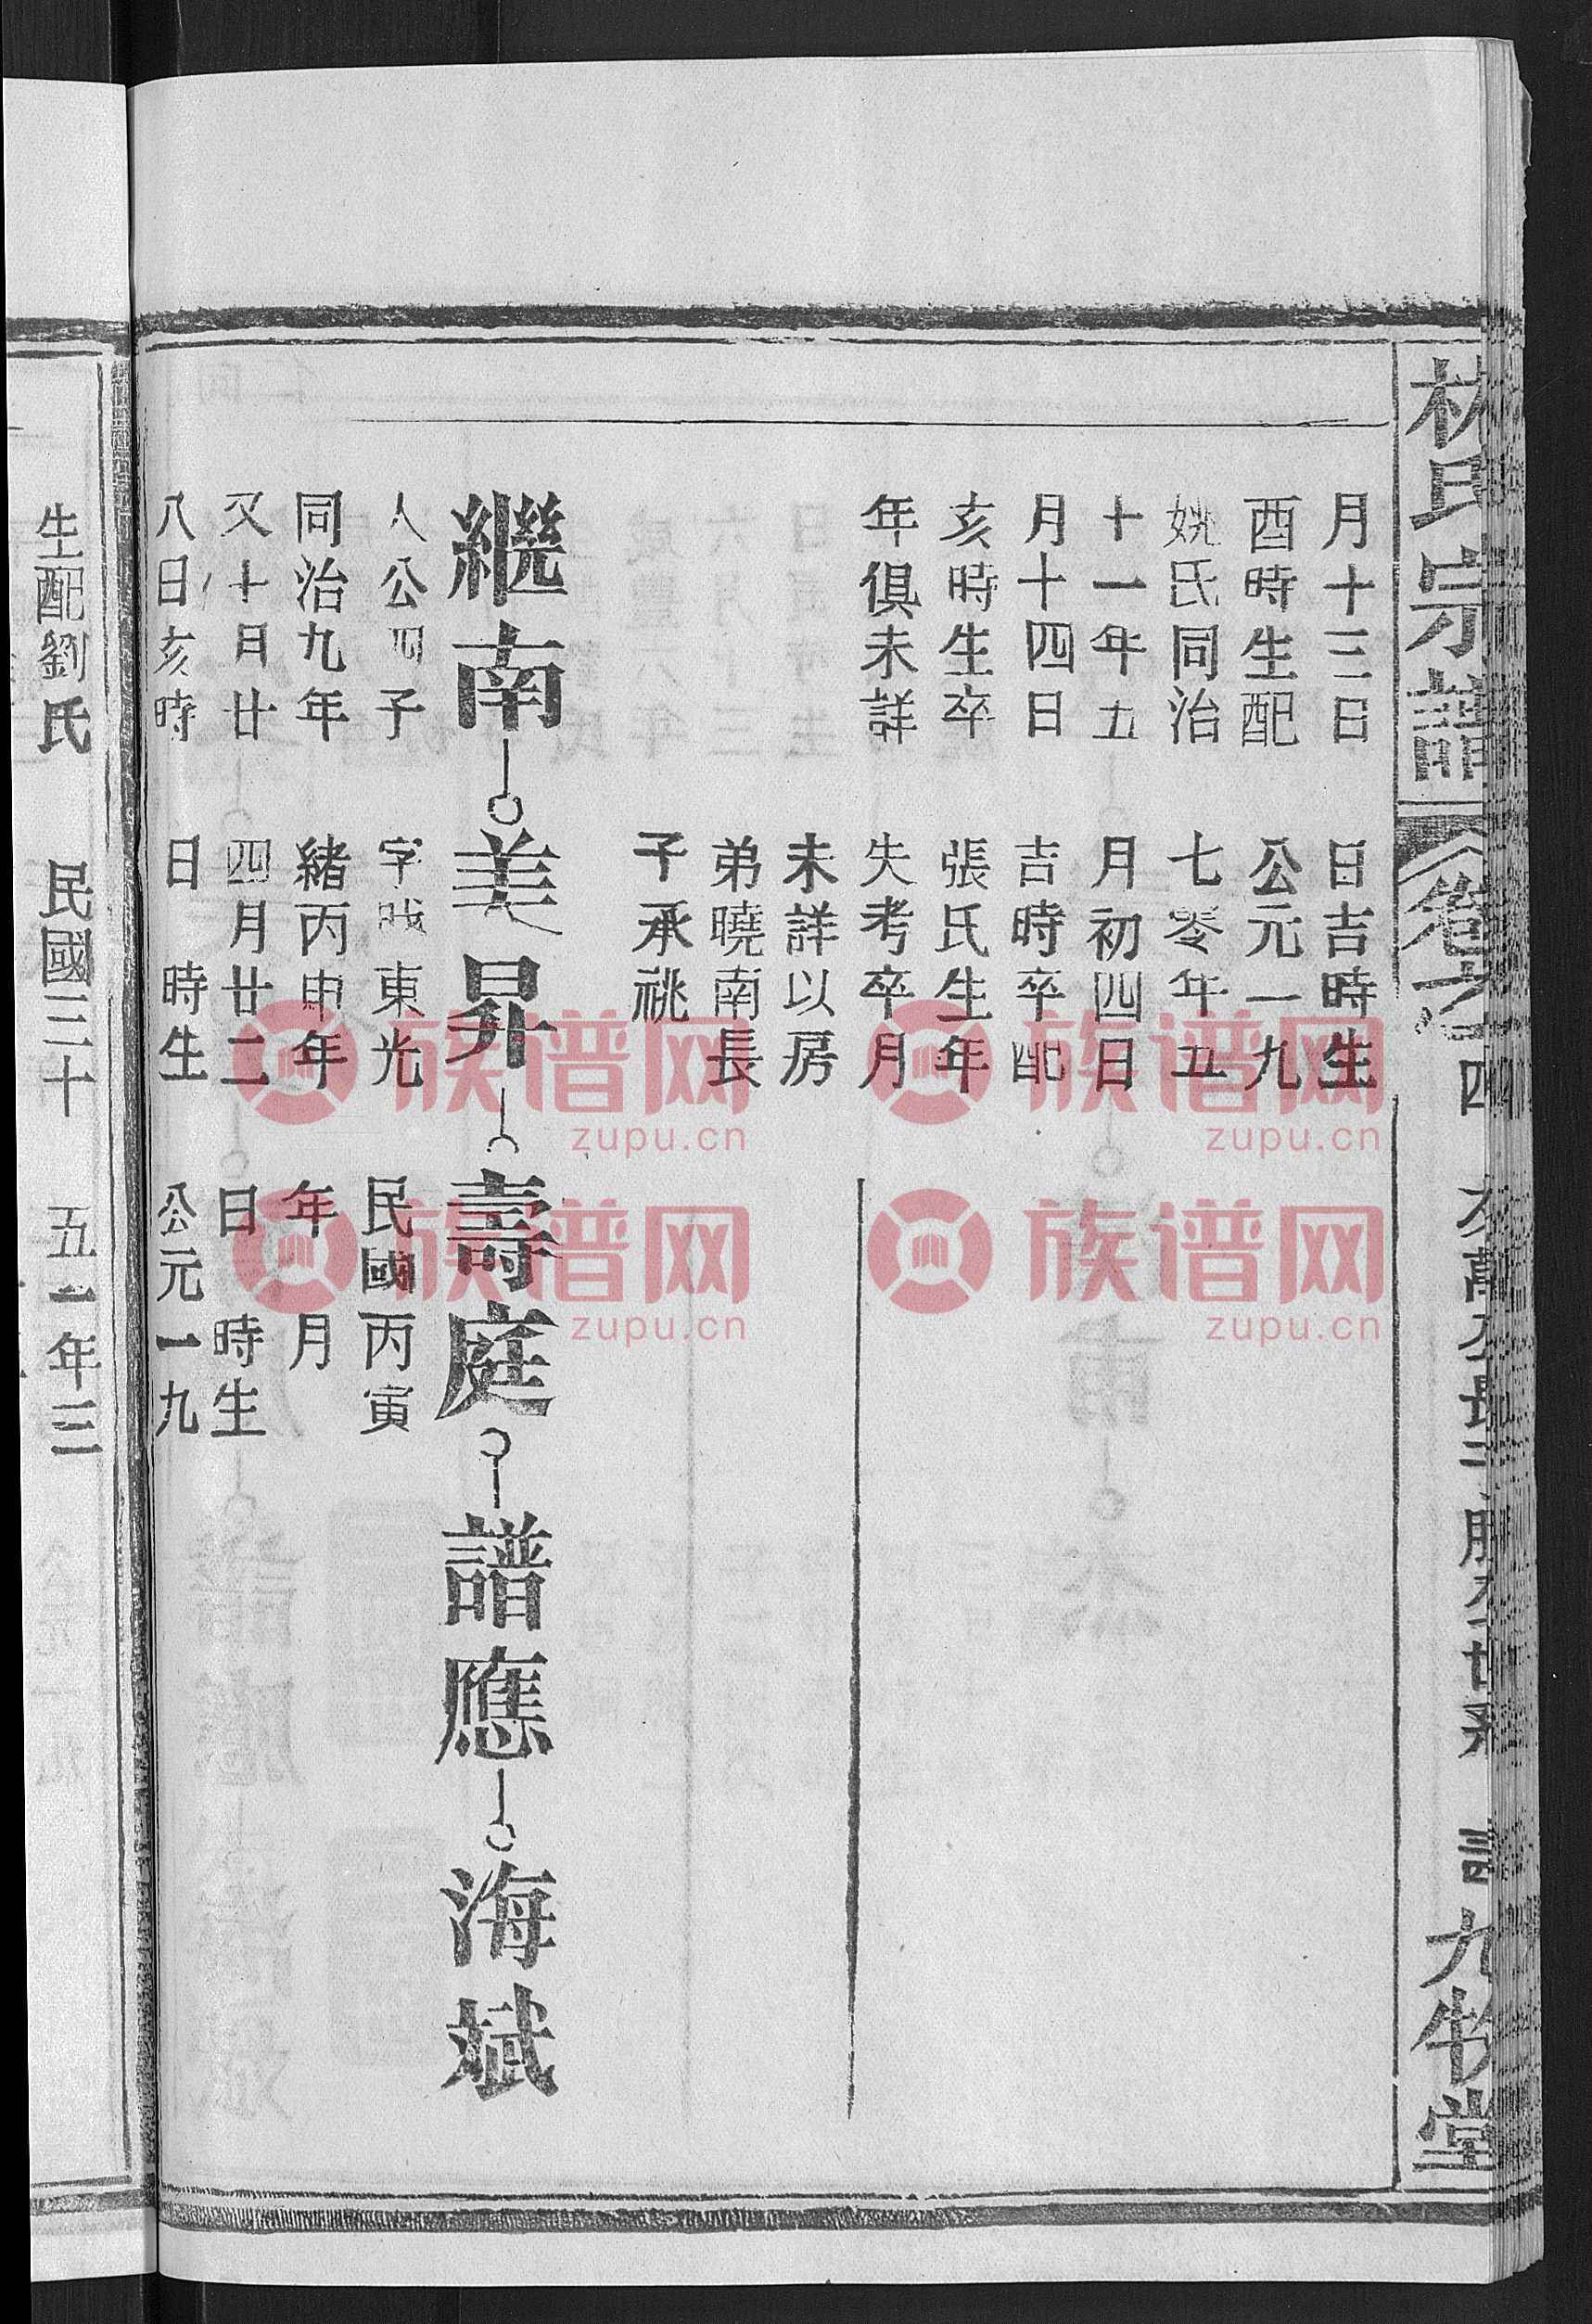 林氏宗譜
卷六
四
九牧堂
月十三日
酉時生配
姚氏同治
十一年五
月十四日
亥時生卒
年俱未詳
日吉時生
公元一九
七零年五
月初四日
吉時卒配
張氏生年
失考卒月
未詳以房
弟曉南長
子承祧
繼南
美昇
壽庭
譜應
海斌
人公四子
同治九年
又十月廿
八日亥時
字 東光
緒丙申年
四月廿二
日 時生
民國丙寅
年 月
日 時生
公元一九
生配劉氏
民國三十
五一年三
族谱网
zupu.cn
族谱网
zupu.cn
族谱网
zupu.cn
族谱网
zupu.cn